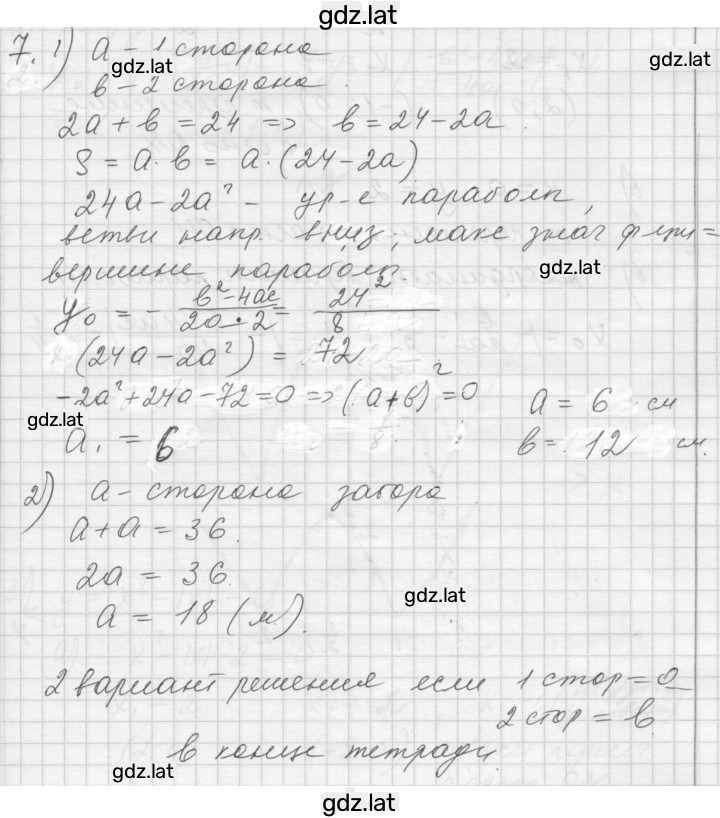 gdz.lat
7. 1) a – 1 сторона
gdz.lat
gdz.lat
в – 2 сторона
2a + в = 24 => в = 24 – 2a
S = a · в = a · (24 – 2a)
24a – 2a² – ур-е параболы,
ветви напр. вниз; макс знач ф-ции =
вершине параболы.
gdz.lat
y₀ = – в² – 4ac / 2a · 2 = 24² / 8
(24a – 2a²) = 72
-2a² + 24a – 72 = 0 => (a + в)² = 0
a = 6 см
gdz.lat
a₁ = 6
в = 12 см.
2) a – сторона забора
a + a = 36.
2a = 36.
gdz.lat
a = 18 (м).
2 вариант решения если 1 стор = a
2 стор = в
в конце тетради
gdz.lat
gdz.lat
gdz.lat